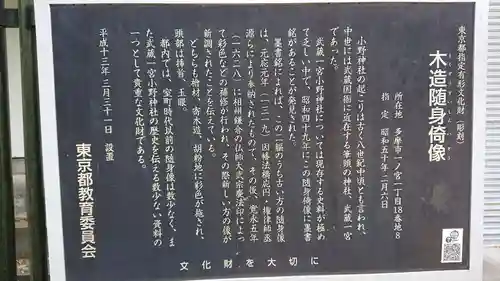 東京都指定有形文化財（彫刻）
木造随身倚像
所在地　多摩市一ノ宮一丁目18番地8
指定　昭和五十年二月六日
小野神社の起こりは古く八世紀中頃とも言われ、
中世には武蔵国衙に近在する筆頭の神社、武蔵一宮
であった。
武蔵一宮小野神社については現存する史料が極め
て乏しい中で、昭和四十九年にこの随身倚像に墨書
銘があることが発見された。
墨書銘によれば、この二躯のうち古い方の随身像
は、元応元年（一三一九）因幡法橋応円・権律師丞
源らにより奉納されたもので、その後、寛永五年
（一六二八）に相州鎌倉の仏師大弐宗慶法印によっ
て彩色などの補修が行われ、その際新しい方の像が
新調されたことを伝えている。
どちらも桧材、寄木造、胡粉地に彩色が施され、
頭部は挿首、玉眼。
都内では、室町時代以前の随身像は数少なく、ま
た武蔵一宮小野神社の歴史を伝える数少ない資料の
一つとして貴重な文化財である。
平成十三年三月三十一日　設置
東京都教育委員会
文化財を大切に